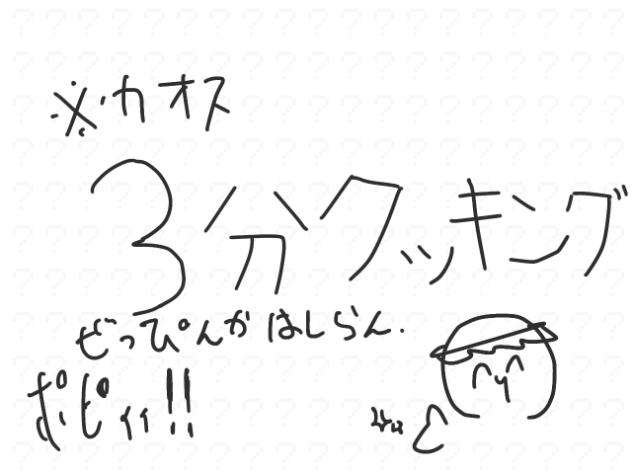 ※カオス
3分クッキング
ぜっぴんかはしらん.
ポピィィ!!